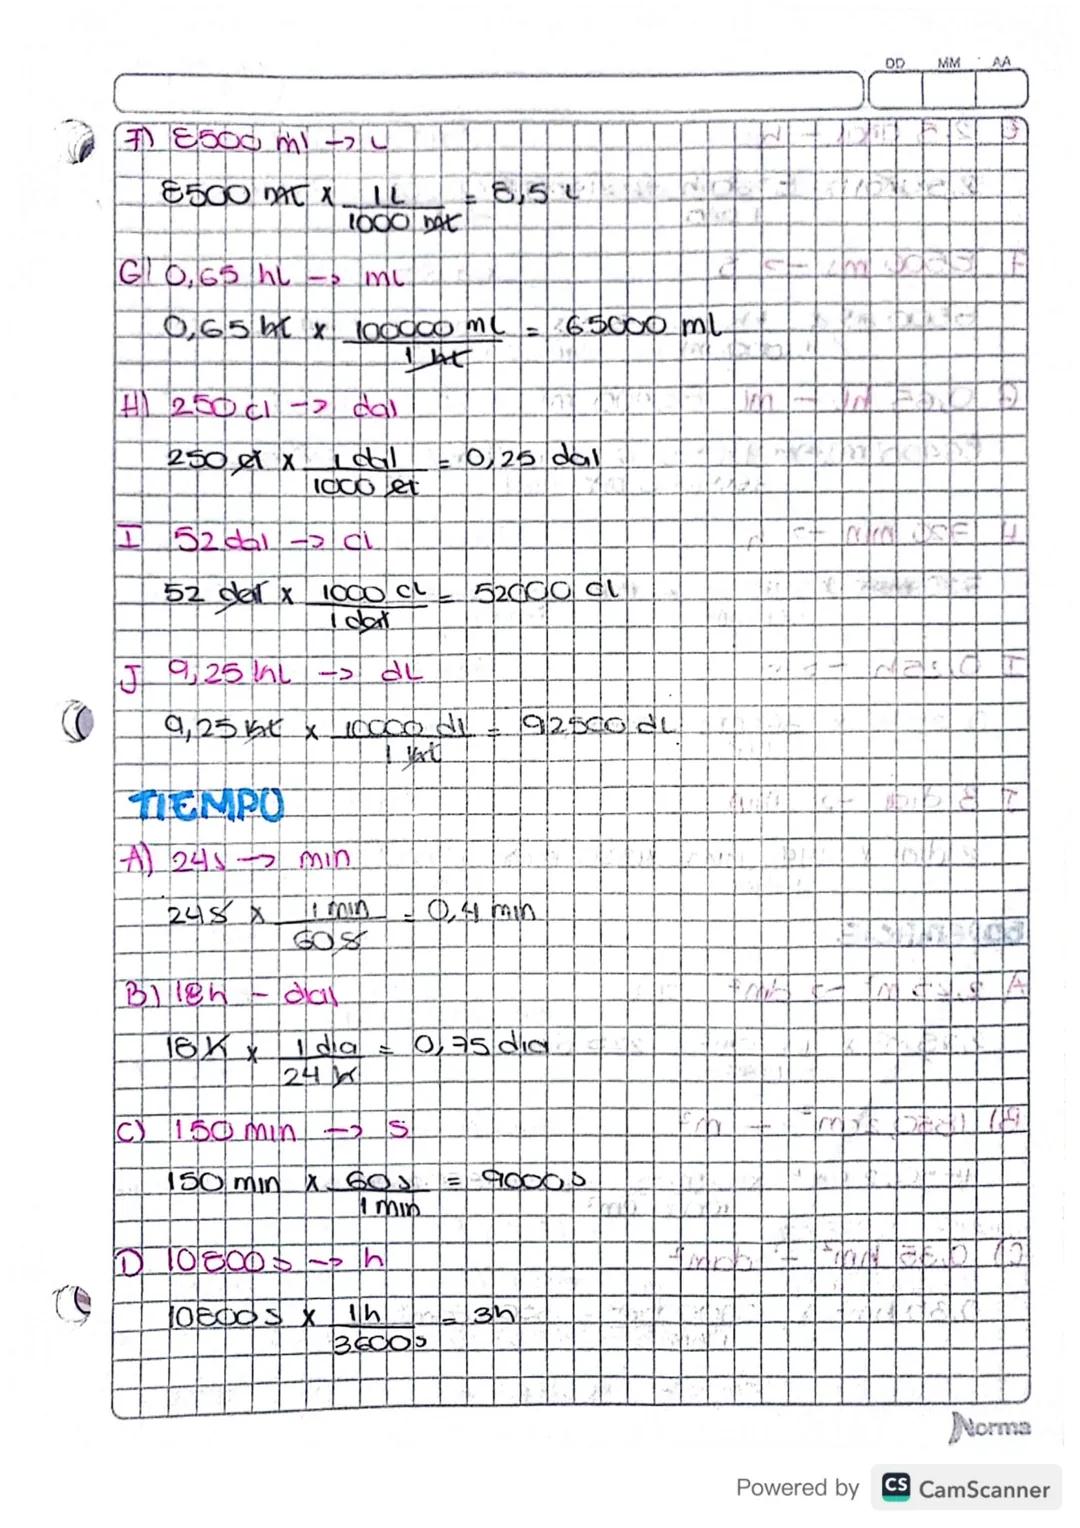 DD MM AA
F) 8500 ml → L
8500 ml x 1L / 1000 ml = 8,5 L
G) 0,65 hL → mL
0,65 hL x 100000 mL / 1 hL = 65000 ml
H) 250 cl → dal
250 cl x 1 dal / 1000 cl = 0,25 dal
I 52 dal → cl
52 dal x 1000 cL / 1 dal = 52000 cl
J 9,25 hL → dL
9,25 kL x 10000 dl / 1 kL = 92500 dL
TIEMPO
A) 24s → min
24s x 1 min / 60s = 0,4 min
B) 18h - dia
18h x 1 dia / 24 h = 0,75 dia
C) 150 min → s
150 min x 60s / 1 min = 9000s
D 10800s → h
10800s x 1h / 3600s = 3h
Norma
Powered by CS CamScanner